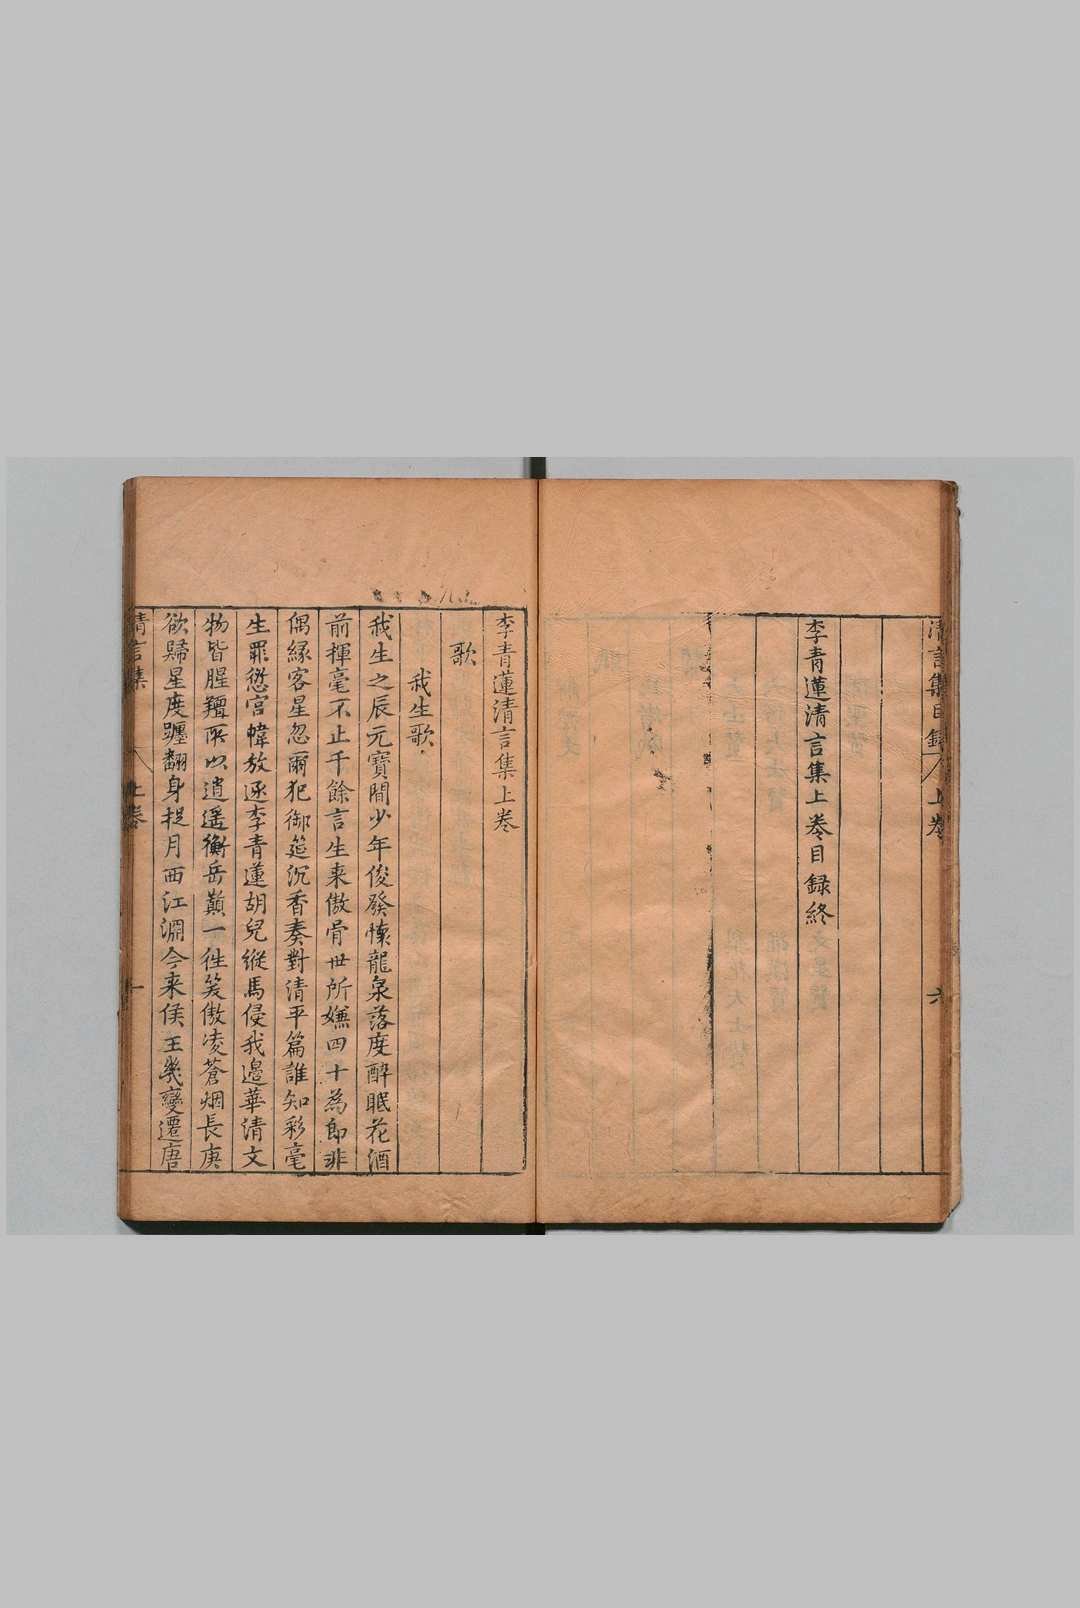 清言集目錄
上卷
六
李青蓮清言集上卷目録終
李青蓮清言集上卷
歌
我生歌
我生之辰元寶間少年俊發懷龍泉落度醉眠花酒
前揮毫不止千餘言生来傲骨世所嫌四十為郎非
偶緣客星忽爾犯御筵沉香奏對清平篇誰知彩毫
生罪愆宮幃放逐李青蓮胡兒縱馬侵我邊華清文
物皆腥羶所以逍遥衡岳巔一徃笑傲凌蒼烟長庚
欲歸星度躔翻身捉月西江淵今来侯王幾變遷唐
清言集
上卷
一